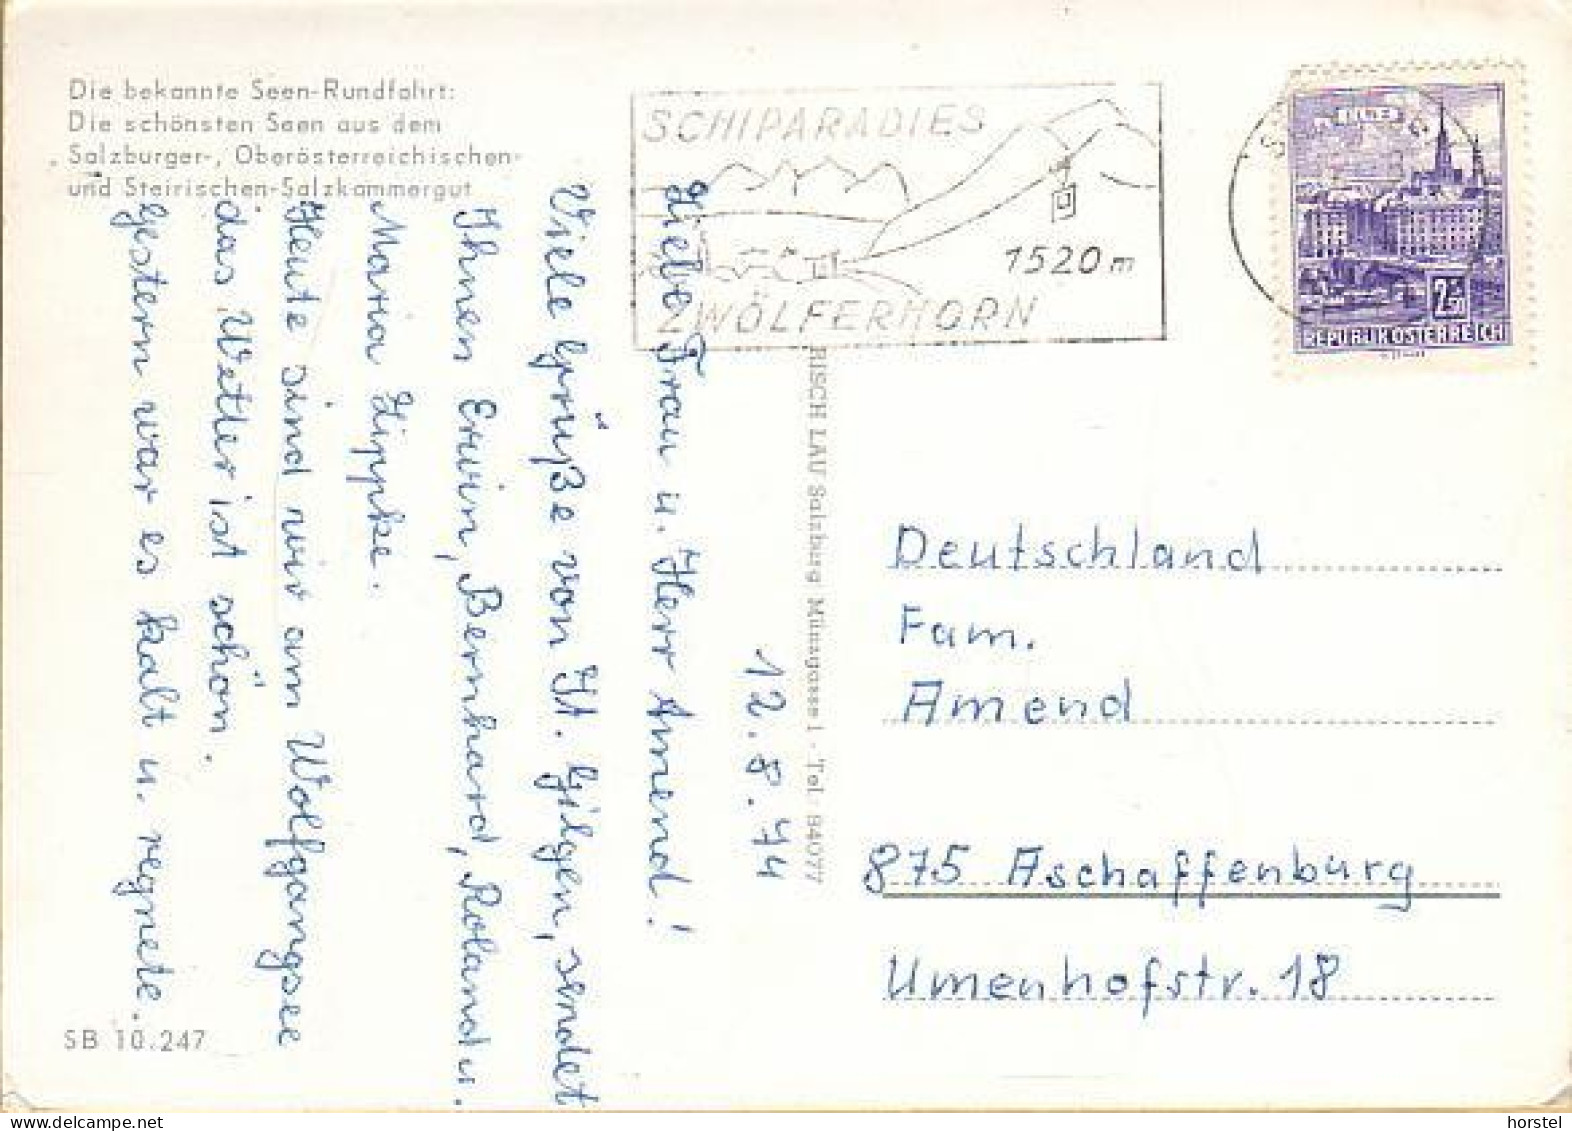 Die bekannte Seen-Rundfahrt:
Die schönsten Seen aus dem
Salzburger-, Oberösterreichischen-
und Steirischen-Salzkammergut
SCHIPARADIES
1520 m
ZWÖLFERHORN
2.50
REPUBLIK ÖSTERREICH
12.8.74
Liebe Frau u. Herr Amend!
Viele Grüße von St. Gilgen, sendet
Ihnen Erwin, Bernhard, Roland u.
Maria Lippke.
Heute sind wir am Wolfgangsee
das Wetter ist schön.
Gestern war es kalt u. regnete.
RISCH LAU Salzburg Münzgasse 1 - Tel: 84077
Deutschland
Fam.
Amend
875 Aschaffenburg
Umenhofstr. 18
SB 10.247
www.delcampe.net
horstel